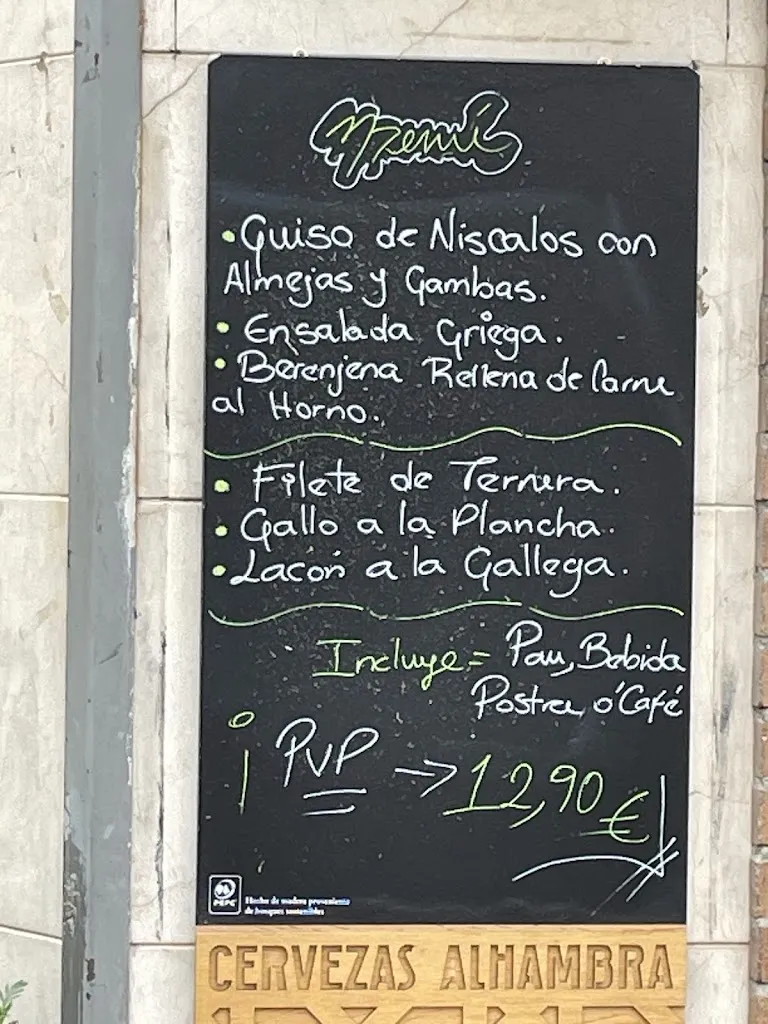 Menú
• Guiso de Niscalos con
Almejas y Gambas.
• Ensalada Griega.
• Berenjena Rellena de Carne
al Horno.
• Filete de Ternera.
• Gallo a la Plancha.
• Lacón a la Gallega.
Incluye = Pan, Bebida
Postre ó Café
¡ PVP → 12,90 €
PEFC
Hecho de madera proveniente
de bosques sostenibles
CERVEZAS ALHAMBRA